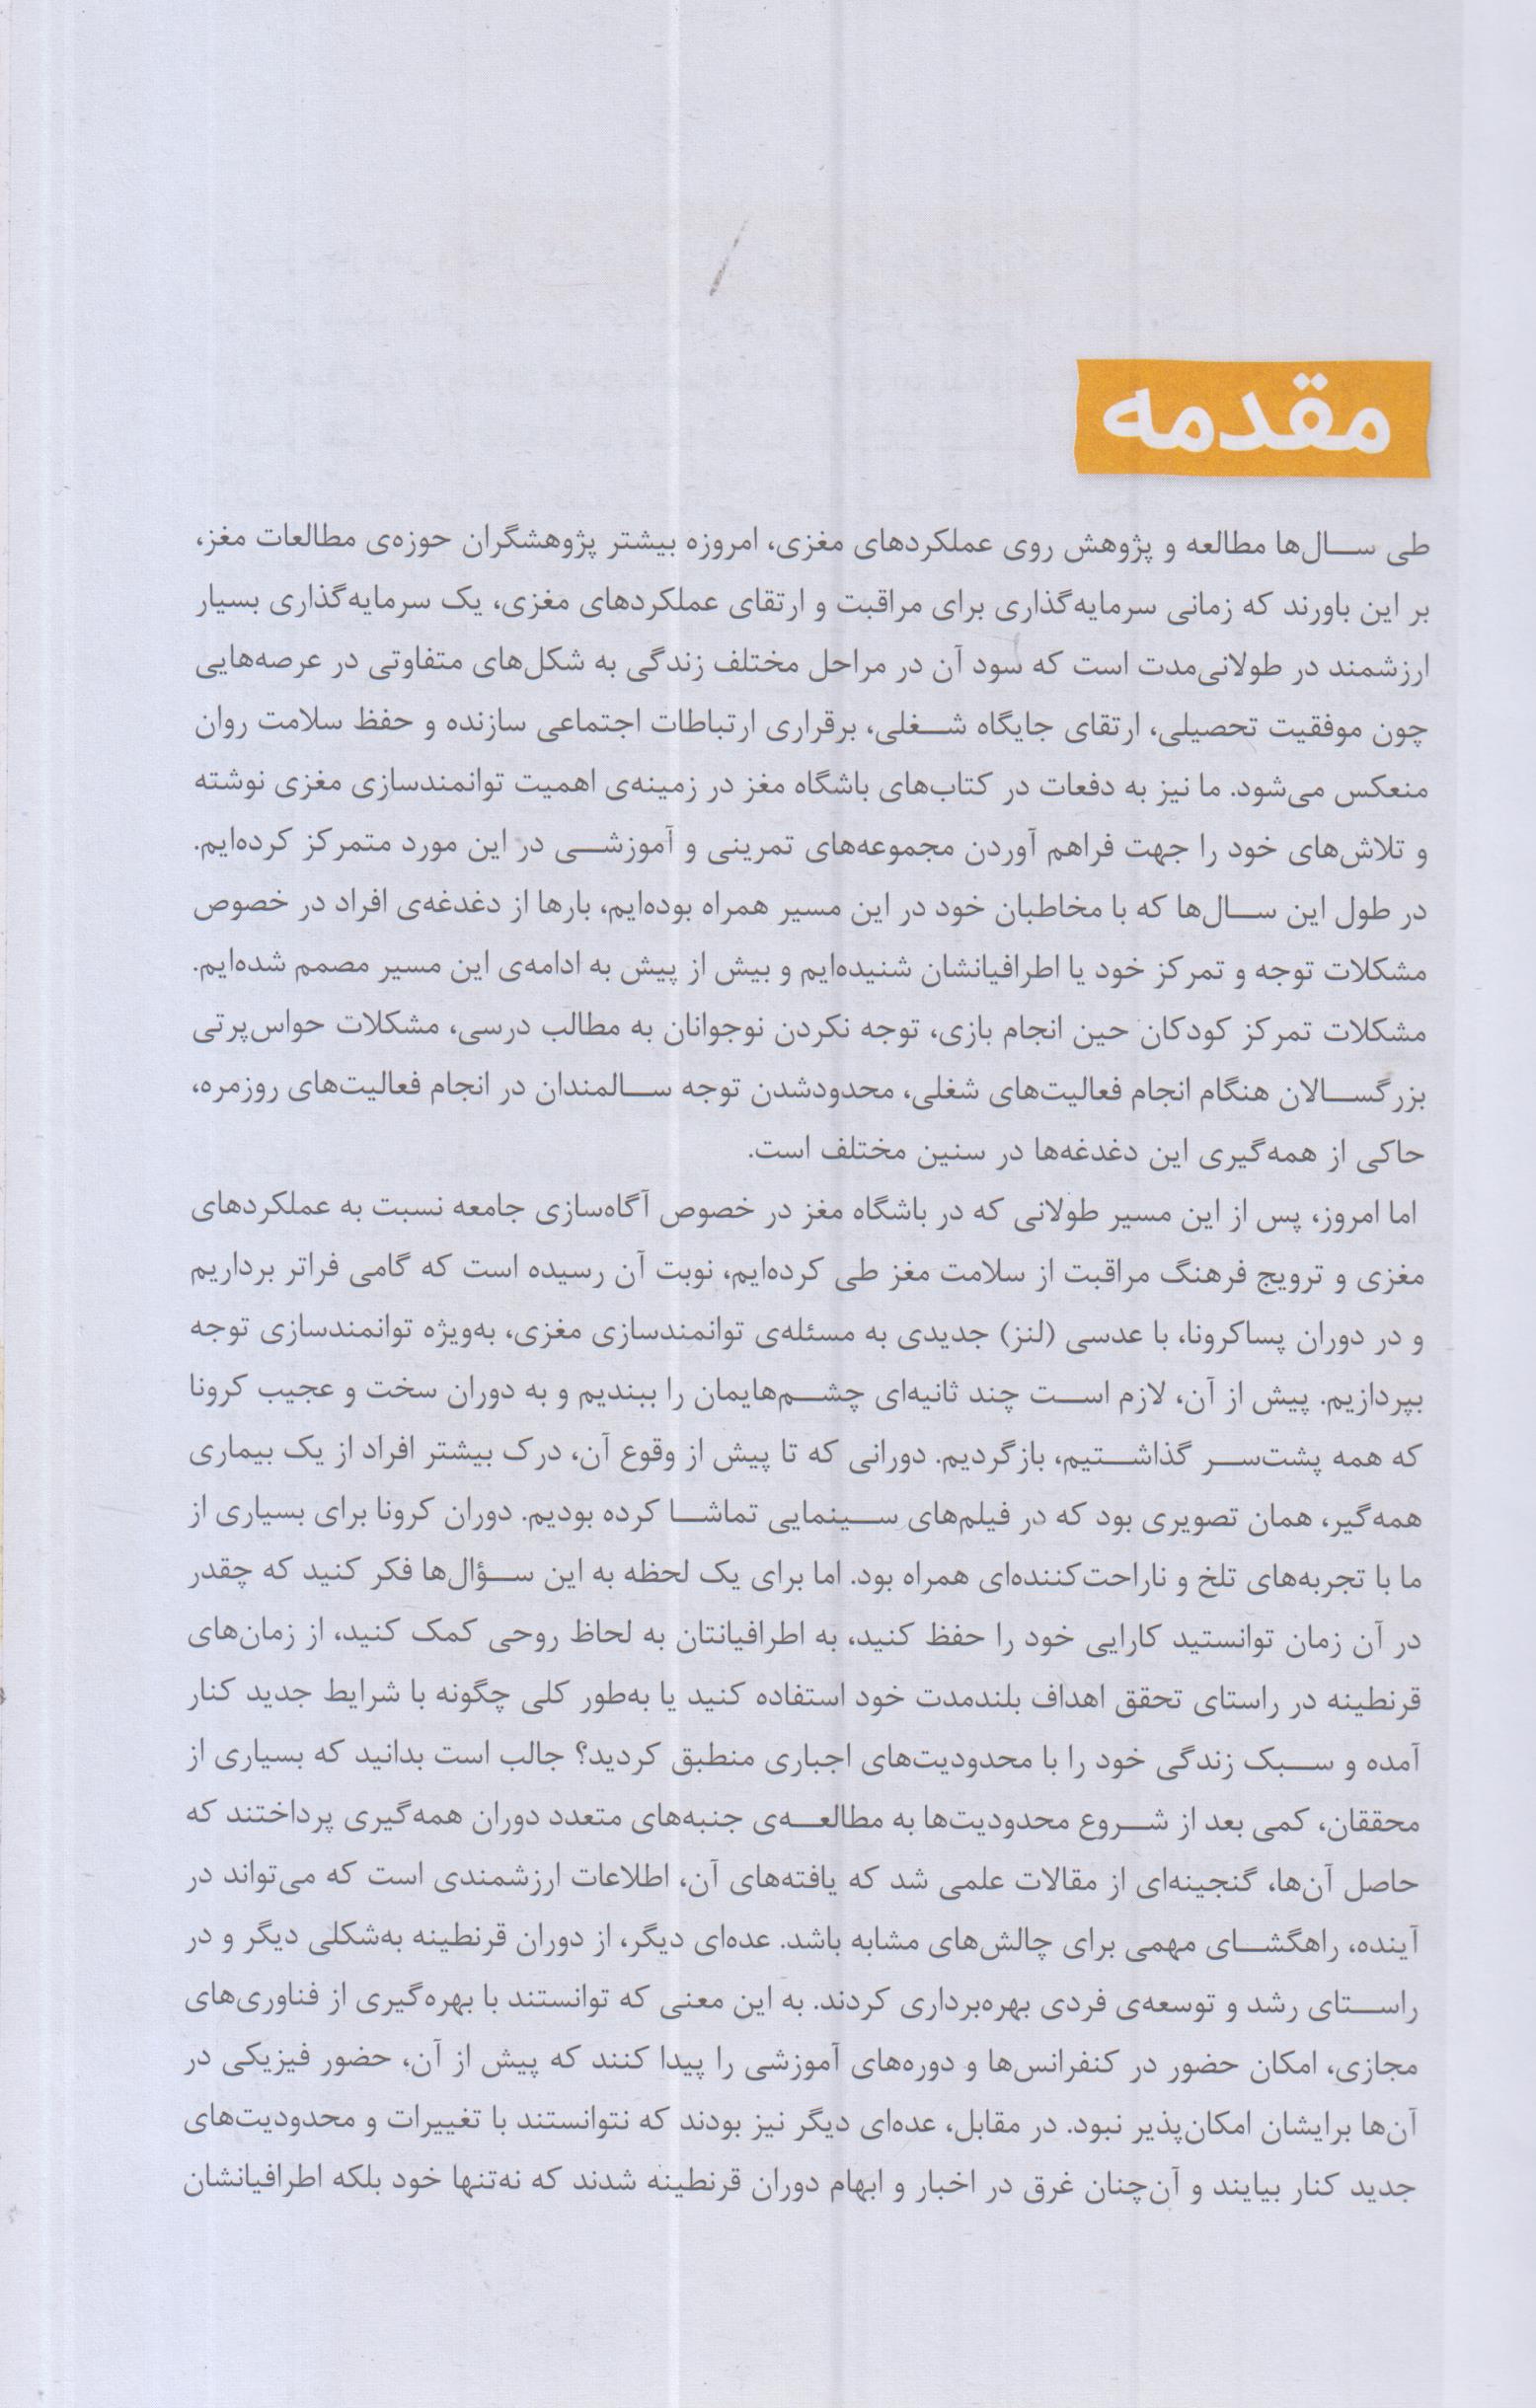 مقدمه
طی سال‌ها مطالعه و پژوهش روی عملکردهای مغزی، امروزه بیشتر پژوهشگران حوزه‌ی مطالعات مغز،
بر این باورند که زمانی سرمایه‌گذاری برای مراقبت و ارتقای عملکردهای مغزی، یک سرمایه‌گذاری بسیار
ارزشمند در طولانی‌مدت است که سود آن در مراحل مختلف زندگی به شکل‌های متفاوتی در عرصه‌هایی
چون موفقیت تحصیلی، ارتقای جایگاه شغلی، برقراری ارتباطات اجتماعی سازنده و حفظ سلامت روان
منعکس می‌شود. ما نیز به دفعات در کتاب‌های باشگاه مغز در زمینه‌ی اهمیت توانمندسازی مغزی نوشته
و تلاش‌های خود را جهت فراهم آوردن مجموعه‌های تمرینی و آموزشی در این مورد متمرکز کرده‌ایم.
در طول این سال‌ها که با مخاطبان خود در این مسیر همراه بوده‌ایم، بارها از دغدغه‌ی افراد در خصوص
مشکلات توجه و تمرکز خود یا اطرافیانشان شنیده‌ایم و بیش از پیش به ادامه‌ی این مسیر مصمم شده‌ایم.
مشکلات تمرکز کودکان حین انجام بازی، توجه نکردن نوجوانان به مطالب درسی، مشکلات حواس‌پرتی
بزرگسالان هنگام انجام فعالیت‌های شغلی، محدودشدن توجه سالمندان در انجام فعالیت‌های روزمره،
حاکی از همه‌گیری این دغدغه‌ها در سنین مختلف است.
اما امروز، پس از این مسیر طولانی که در باشگاه مغز در خصوص آگاه‌سازی جامعه نسبت به عملکردهای
مغزی و ترویج فرهنگ مراقبت از سلامت مغز طی کرده‌ایم، نوبت آن رسیده است که گامی فراتر برداریم
و در دوران پساکرونا، با عدسی (لنز) جدیدی به مسئله‌ی توانمندسازی مغزی، به‌ویژه توانمندسازی توجه
بپردازیم. پیش از آن، لازم است چند ثانیه‌ای چشم‌هایمان را ببندیم و به دوران سخت و عجیب کرونا
که همه پشت‌سر گذاشتیم، بازگردیم. دورانی که تا پیش از وقوع آن، درک بیشتر افراد از یک بیماری
همه‌گیر، همان تصویری بود که در فیلم‌های سینمایی تماشا کرده بودیم. دوران کرونا برای بسیاری از
ما با تجربه‌های تلخ و ناراحت‌کننده‌ای همراه بود. اما برای یک لحظه به این سؤال‌ها فکر کنید که چقدر
در آن زمان توانستید کارایی خود را حفظ کنید، به اطرافیانتان به لحاظ روحی کمک کنید، از زمان‌های
قرنطینه در راستای تحقق اهداف بلندمدت خود استفاده کنید یا به‌طور کلی چگونه با شرایط جدید کنار
آمده و سبک زندگی خود را با محدودیت‌های اجباری منطبق کردید؟ جالب است بدانید که بسیاری از
محققان، کمی بعد از شروع محدودیت‌ها به مطالعه‌ی جنبه‌های متعدد دوران همه‌گیری پرداختند که
حاصل آن‌ها، گنجینه‌ای از مقالات علمی شد که یافته‌های آن، اطلاعات ارزشمندی است که می‌تواند در
آینده، راهگشای مهمی برای چالش‌های مشابه باشد. عده‌ای دیگر، از دوران قرنطینه به‌شکلی دیگر و در
راستای رشد و توسعه‌ی فردی بهره‌برداری کردند. به این معنی که توانستند با بهره‌گیری از فناوری‌های
مجازی، امکان حضور در کنفرانس‌ها و دوره‌های آموزشی را پیدا کنند که پیش از آن، حضور فیزیکی در
آن‌ها برایشان امکان‌پذیر نبود. در مقابل، عده‌ای دیگر نیز بودند که نتوانستند با تغییرات و محدودیت‌های
جدید کنار بیایند و آن‌چنان غرق در اخبار و ابهام دوران قرنطینه شدند که نه‌تنها خود بلکه اطرافیانشان